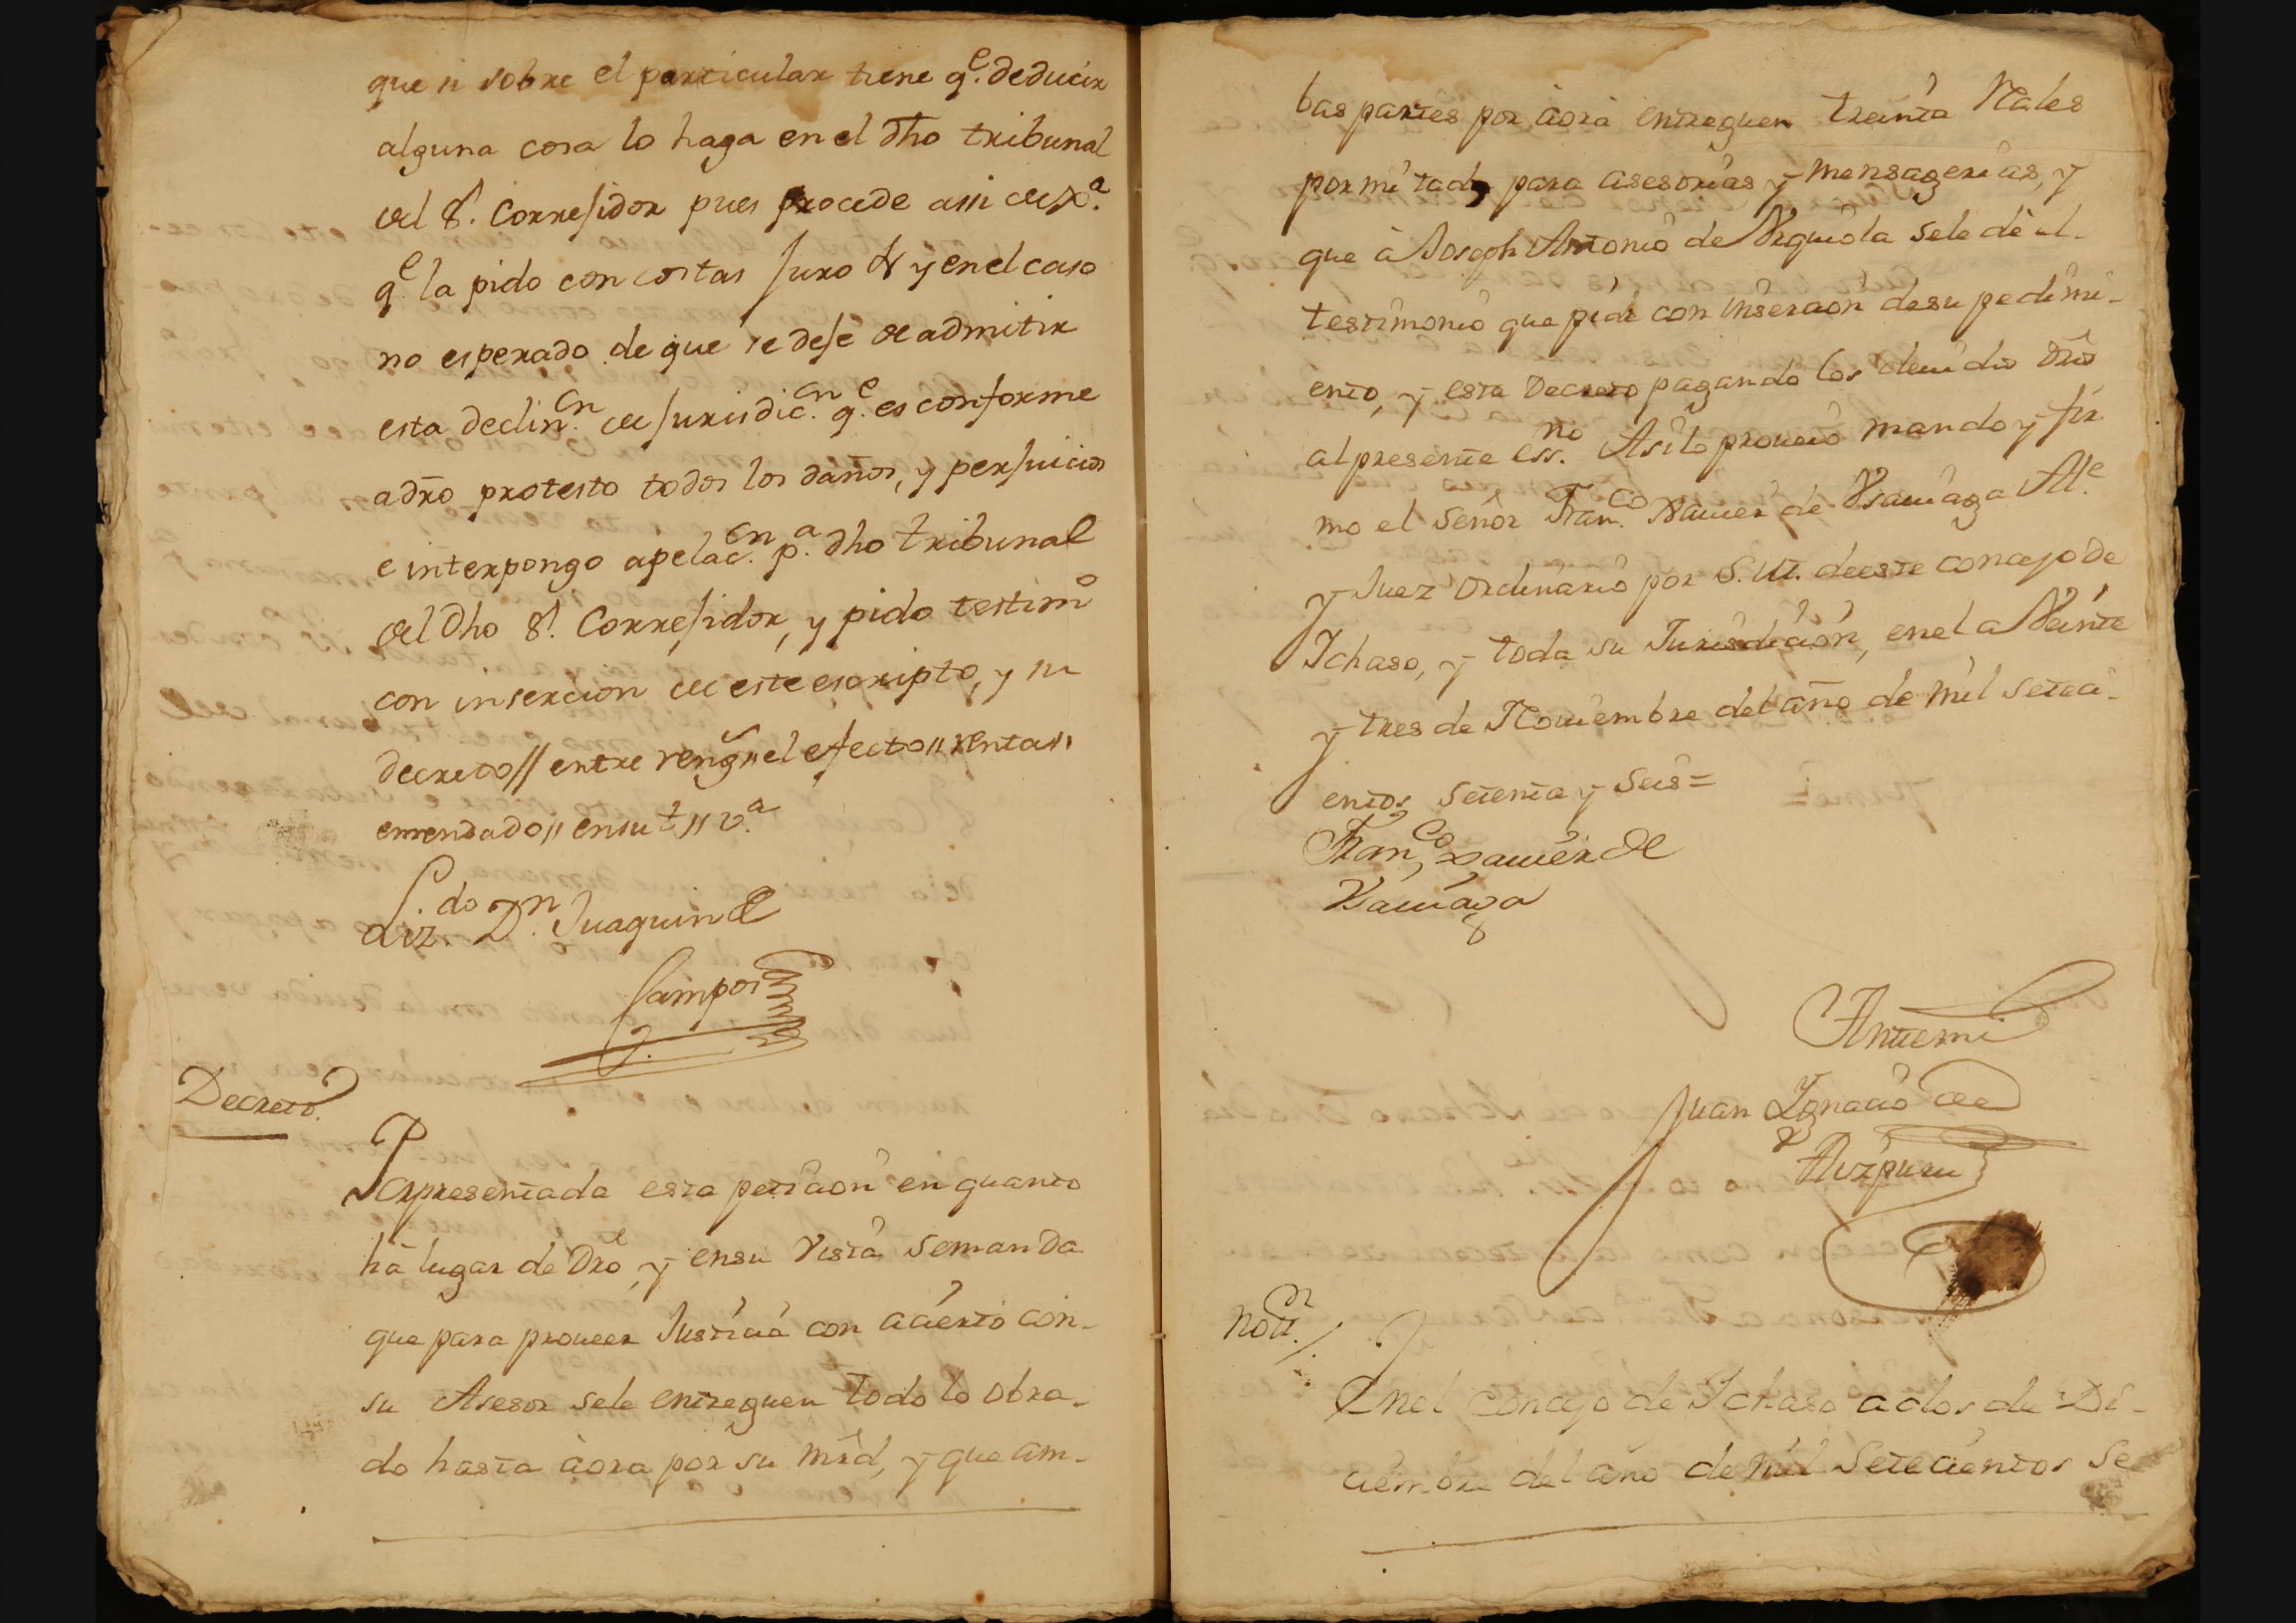 que si sobre el particular tiene q.e deducir
alguna cosa lo haga en el dho tribunal
del S.r Correjidor pues procede assi de Jx.a
q.e la pido con costas Juro &r y en el caso
no esperado de que se deje de admitir
esta declin.cn de jurisdic.cn q.e es conforme
a dr̃o protesto todos los daños, y perjuicios
e interpongo apelac.cn p.a dho tribunal
del dho S.r Correjidor, y pido testim.o
con insercion de este escripto, y su
decreto // entre reng.s el efecto // renta //
enmendado // en su t // v.a
Liz.do D.n Juaquin de
Campos
Decreto.
Por presentada esta peticion en quanto
hà lugar de Dr̃o, y en su Vista se manda
que para proveer Justicia con acierto con-
su Asesor se le entreguen todo lo obra-
do hasta àora por su mr̃d, y que am-
bas partes por àora entreguen treinta Rales
por mitad, para asesorias y mensagerias, y
que à Joseph Antonio de Vrquiola se le dè el
testimonio que pide con insercion de su pedimi-
ento, y este Decreto pagando los devidos dr̃os
al presente ess.no Asi lo proveiò mando y fir
mo el Señor Fran.co Xavier de Vsaviaga Al.e
y Juez Ordinario por S. M. de este concejo de
Ichaso, y toda su Jurisdicion, en el a Veinte
y tres de Noviembre del año de mil seteci-
entos setenta y seis =
Fran.co Xavier de
Vsaviaga
Ante mi
Juan Ignacio de
Aizpuru
Noti.on
En el Concejo de Ichaso a dos de Di-
ciembre del año de mil Setecientos Se